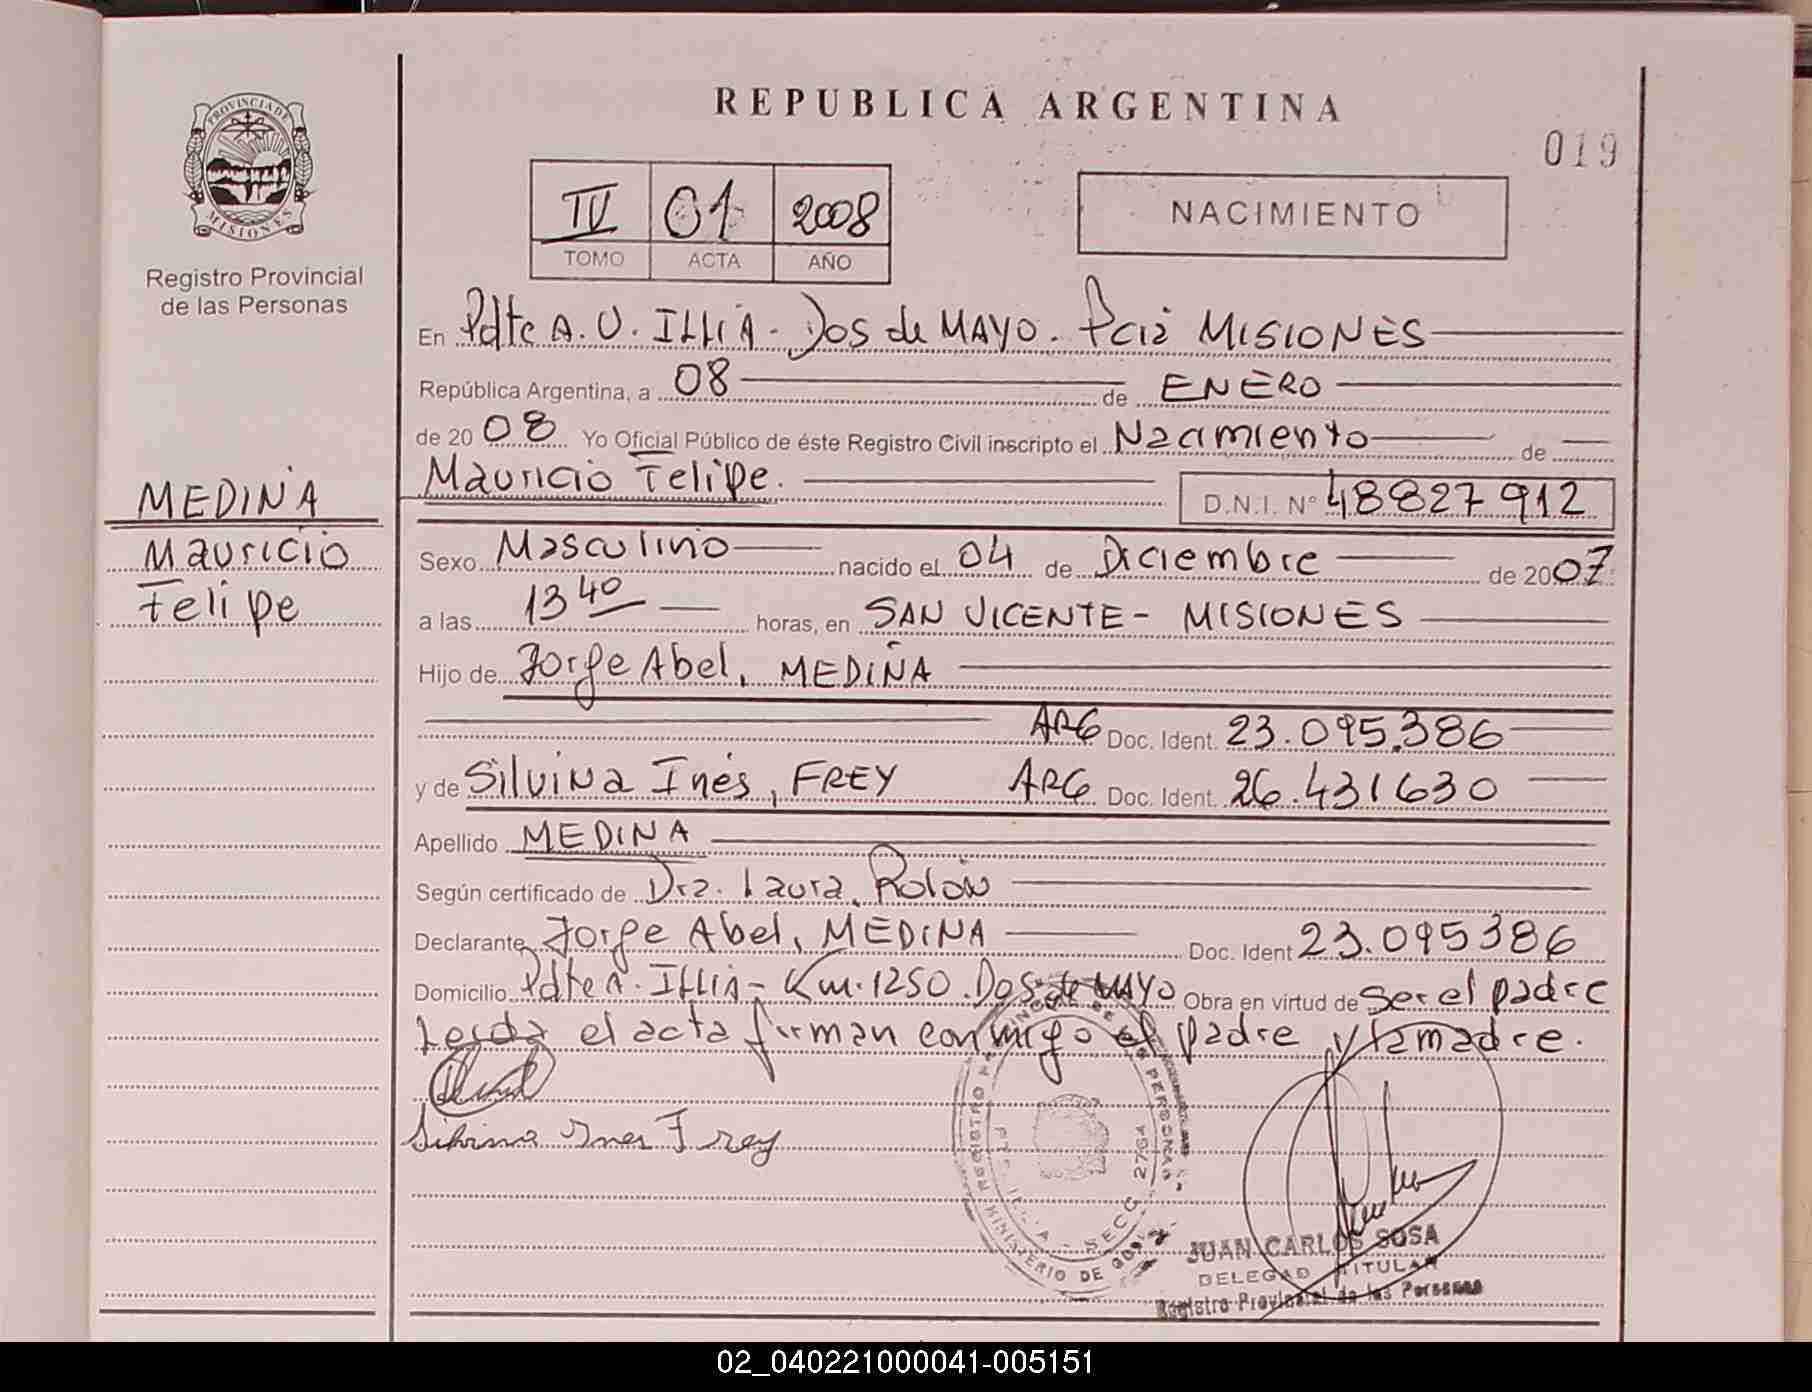 REPUBLICA ARGENTINA
019
PROVINCIA DE
MISIONES
Registro Provincial
de las Personas
IV 01 2008
TOMO ACTA AÑO
NACIMIENTO
En Pdte A. U. ILLIA - Dos de MAYO. Pcia MISIONES
República Argentina, a 08 de ENERO
de 20 08 Yo Oficial Público de éste Registro Civil inscripto el Nacimiento de
Mauricio Felipe. D.N.I. Nº 48827912
MEDINA
Mauricio
Felipe
Sexo Masculino nacido el 04 de Diciembre de 2007
a las 13 40 horas, en SAN VICENTE - MISIONES
Hijo de Jorge Abel, MEDINA
ARG Doc. Ident. 23.095.386
y de Silvina Inés, FREY ARG Doc. Ident. 26.431630
Apellido MEDINA
Según certificado de Dra. Laura, Rolón
Declarante Jorge Abel, MEDINA Doc. Ident 23.095386
Domicilio Pdte A. ILLIA - Km. 1250. Dos de MAYO Obra en virtud de Ser el padre
Leida el acta firman conmigo el padre y la madre.
Silvina Ines Frey
REGISTRO PROVINCIAL DE LAS PERSONAS
MINISTERIO DE GOB
SECC 2764
JUAN CARLOS SOSA
DELEGADO TITULAR
Registro Provincial de las Personas
02_040221000041-005151